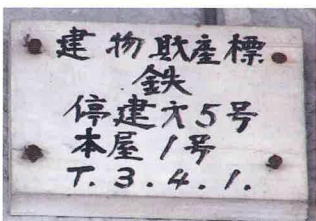 建物財産標
鉄
停建大5号
本屋1号
T.3.4.1.